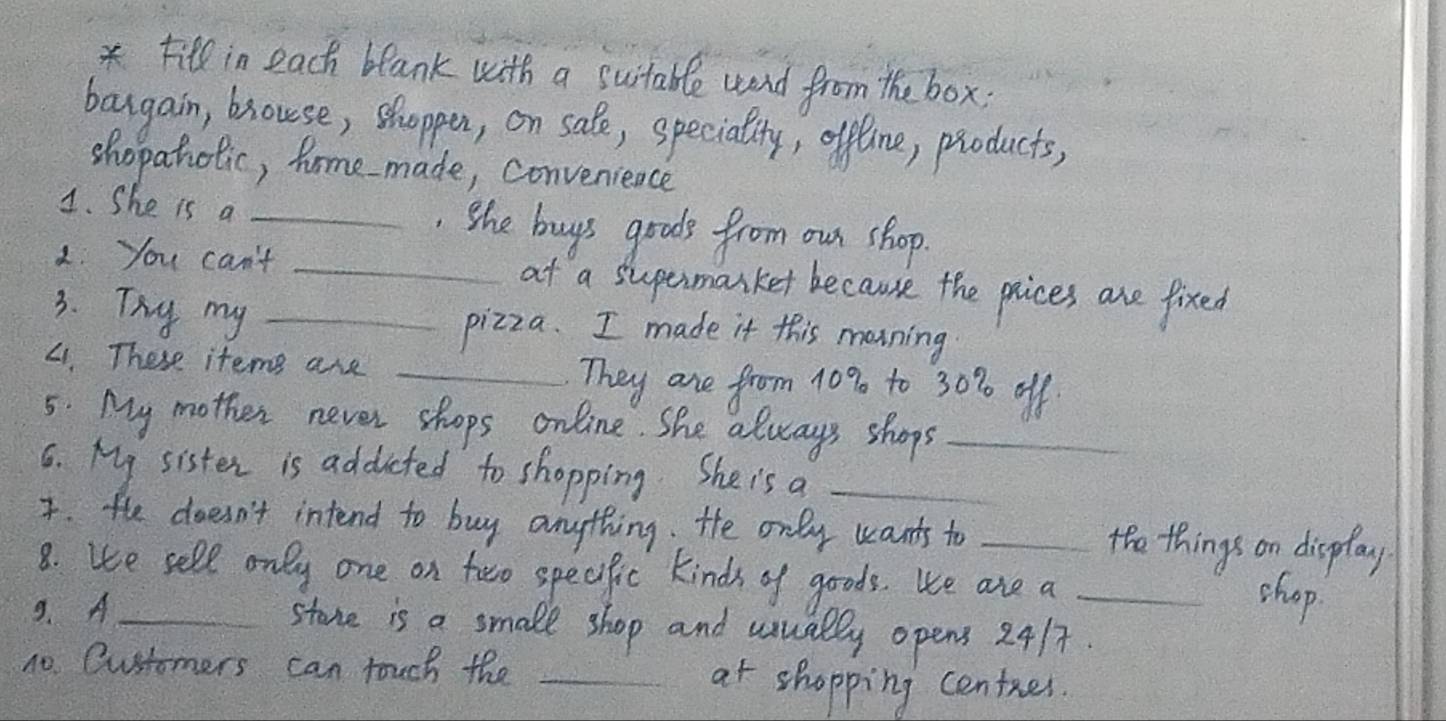 * Fill in each blank with a suitable word from the box:
bargain, browse, shopper, on sale, speciality, offline, products,
shopaholic, home-made, convenience
1. She is a ________. She buys goods from our shop.
2. You can't ________ at a supermarket because the prices are fixed
3. Try my ________ pizza. I made it this morning.
4. These items are ________. They are from 10% to 30% off.
5. My mother never shops online. She always shops ________
6. My sister is addicted to shopping. She is a ________
7. He doesn't intend to buy anything. He only wants to ________ the things on display.
8. We sell only one or two specific kinds of goods. We are a ________ shop.
9. A ________ store is a small shop and usually opens 24/7.
10. Customers can touch the ________ at shopping centres.